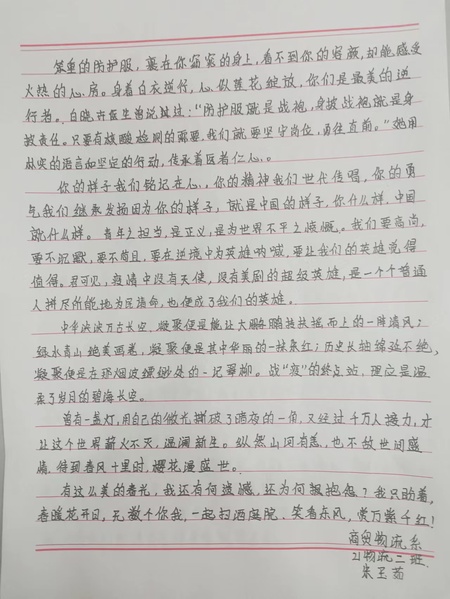 笨重的防护服，裹在你宽宽的身上，看不到你的容颜，却能感受
火热的心房。身着白衣逆行，心似莲花绽放，你们是最美的逆
行者。白晓卉医生曾说过："防护服就是战袍，身披战袍就是身
披责任。只要有核酸检测的需要，我们就要坚守岗位，勇往直前。"她用
朴实的语言和坚定的行动，传承着医者仁心。
你的样子我们铭记在心，你的精神我们世代传唱，你的勇
气我们继承发扬因为你的样子，就是中国的样子，你什么样，中国
就什么样。青年之担当，是正义，是为世界不平之愤慨。我们要高尚，
要不沉默，要不苟且，要在逆境中为英雄呐喊，要让我们的英雄觉得
值得。君可见，疫情中没有天使，没有美剧的超级英雄，是一个个普通
人拼尽所能地为民请命，也便成了我们的英雄。
中华泱泱万古长空，凝聚便是能让大鹏鹏抟扶摇而上的一阵清风；
绿水青山绝美画卷，凝聚便是其中华丽的一抹朱红；历史长轴绵延不绝，
凝聚便是在那烟波缥缈处的一记翠柳。战"疫"的终点站，理应是温
柔了岁月的碧海长空。
曾有一盏灯，用自己的微光撕破了暗夜的一角，又经过千万人接力，才
让这个世界薪火不灭，温润新生。纵然山河有恙，也不敌世间盛
情。待到春风十里时，樱花漫盛世。
有这么美的春光，我还有何遗憾，还为何报抱怨？我只盼着，
春暖花开日，无数个你我，一起扫洒庭院、笑看东风，赏万紫千红！
商贸物流系
21物流二班
朱玉茹